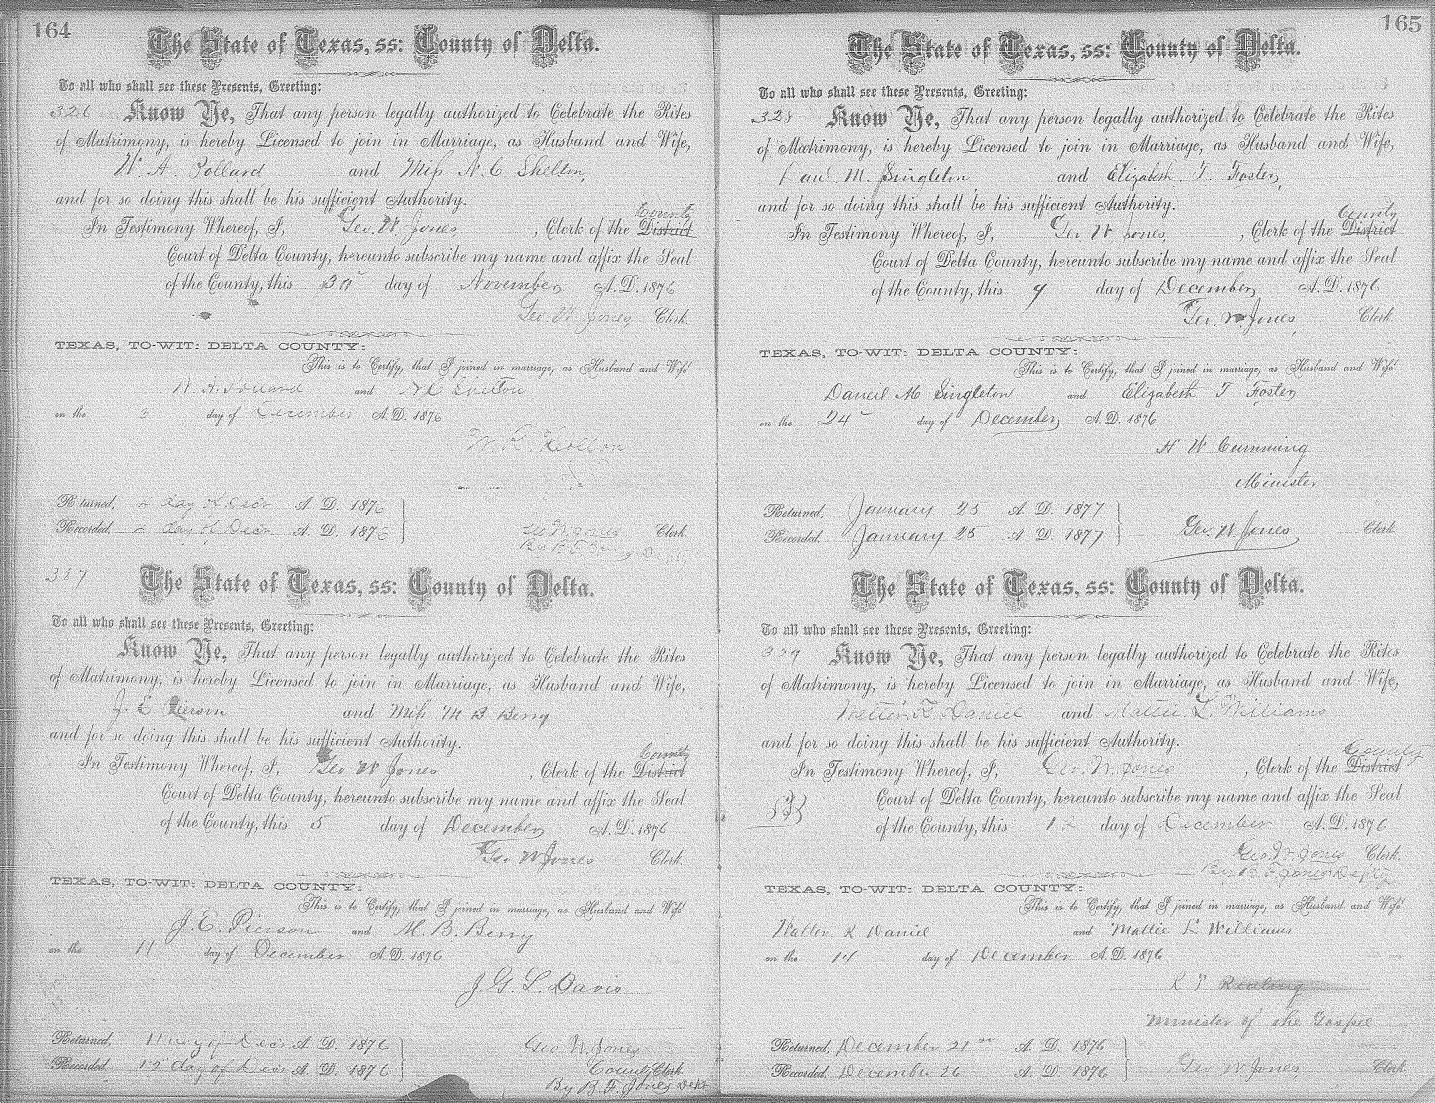 164
The State of Texas, ss: County of Delta.
To all who shall see these Presents, Greeting:
326 Know Ye, That any person legally authorized to Celebrate the Rites
of Matrimony, is hereby Licensed to join in Marriage, as Husband and Wife,
W. A. Pollard and Miss N. C. Shelton,
and for so doing this shall be his sufficient Authority.
County
In Testimony Whereof, I, Geo. W Jones, Clerk of the District
Court of Delta County, hereunto subscribe my name and affix the Seal
of the County, this 30 day of November A.D. 1876
Geo. W. Jones Clerk.
TEXAS, TO-WIT: DELTA COUNTY:
This is to Certify, that I joined in marriage, as Husband and Wife
W. A. Pollard and N C Shelton
on the 3 day of December A.D. 1876
Returned, day of Decr A. D. 1876
Recorded day of Decr A. D. 1876
Geo W Jones Clerk
By B F
327
The State of Texas, ss: County of Delta.
To all who shall see these Presents, Greeting:
Know Ye, That any person legally authorized to Celebrate the Rites
of Matrimony, is hereby Licensed to join in Marriage, as Husband and Wife,
J. E. Pierson and Miss M B Berry
and for so doing this shall be his sufficient Authority.
County
In Testimony Whereof, I, Geo W Jones, Clerk of the District
Court of Delta County, hereunto subscribe my name and affix the Seal
of the County, this 5 day of December A.D. 1876
Geo W Jones Clerk.
TEXAS, TO-WIT: DELTA COUNTY:
This is to Certify, that I joined in marriage, as Husband and Wife
J. E. Pierson and M. B. Berry
on the 11 day of December A.D. 1876
J. G. L. Davis
Returned, 11 day of Decr A. D. 1876
Recorded 12 day of Decr A. D. 1876
Geo W. Jones
County Clerk
By B. F. Jones Dept
165
The State of Texas, ss: County of Delta.
To all who shall see these Presents, Greeting:
328 Know Ye, That any person legally authorized to Celebrate the Rites
of Matrimony, is hereby Licensed to join in Marriage, as Husband and Wife,
M. Singleton and Elizabeth T. Foster,
and for so doing this shall be his sufficient Authority.
County
In Testimony Whereof, I, Geo W Jones, Clerk of the District
Court of Delta County, hereunto subscribe my name and affix the Seal
of the County, this 9 day of December A.D. 1876
Geo. W Jones, Clerk.
TEXAS, TO-WIT: DELTA COUNTY:
This is to Certify, that I joined in marriage, as Husband and Wife
Daneil M Singleton and Elizabeth T Foster
on the 24 day of December A.D. 1876
H W Cumming
Minister
Returned, January 25 A. D. 1877
Recorded January 25 A. D. 1877
Geo. W. Jones Clerk
The State of Texas, ss: County of Delta.
To all who shall see these Presents, Greeting:
329 Know Ye, That any person legally authorized to Celebrate the Rites
of Matrimony, is hereby Licensed to join in Marriage, as Husband and Wife,
Walter K Daniel and Mattie L. Williams
and for so doing this shall be his sufficient Authority.
County
In Testimony Whereof, I, Geo. W. Jones, Clerk of the District
Court of Delta County, hereunto subscribe my name and affix the Seal
of the County, this 12 day of December A.D. 1876
Geo. W. Jones Clerk.
By B F Jones Depty
TEXAS, TO-WIT: DELTA COUNTY:
This is to Certify, that I joined in marriage, as Husband and Wife
Walter K Daniel and Mattie L Williams
on the 14 day of December A.D. 1876
Minister of the Gospel
Returned, December 21 A. D. 1876
Recorded December 26 A. D. 1876
Geo W Jones Clerk